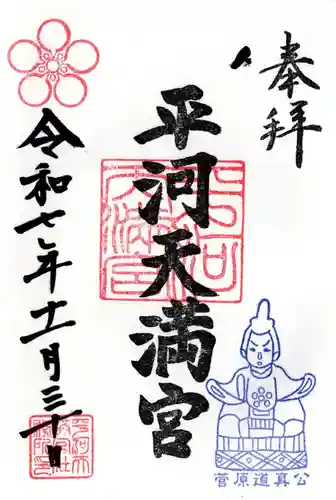 奉拝
平河天満宮
令和七年十一月三十日
菅原道真公